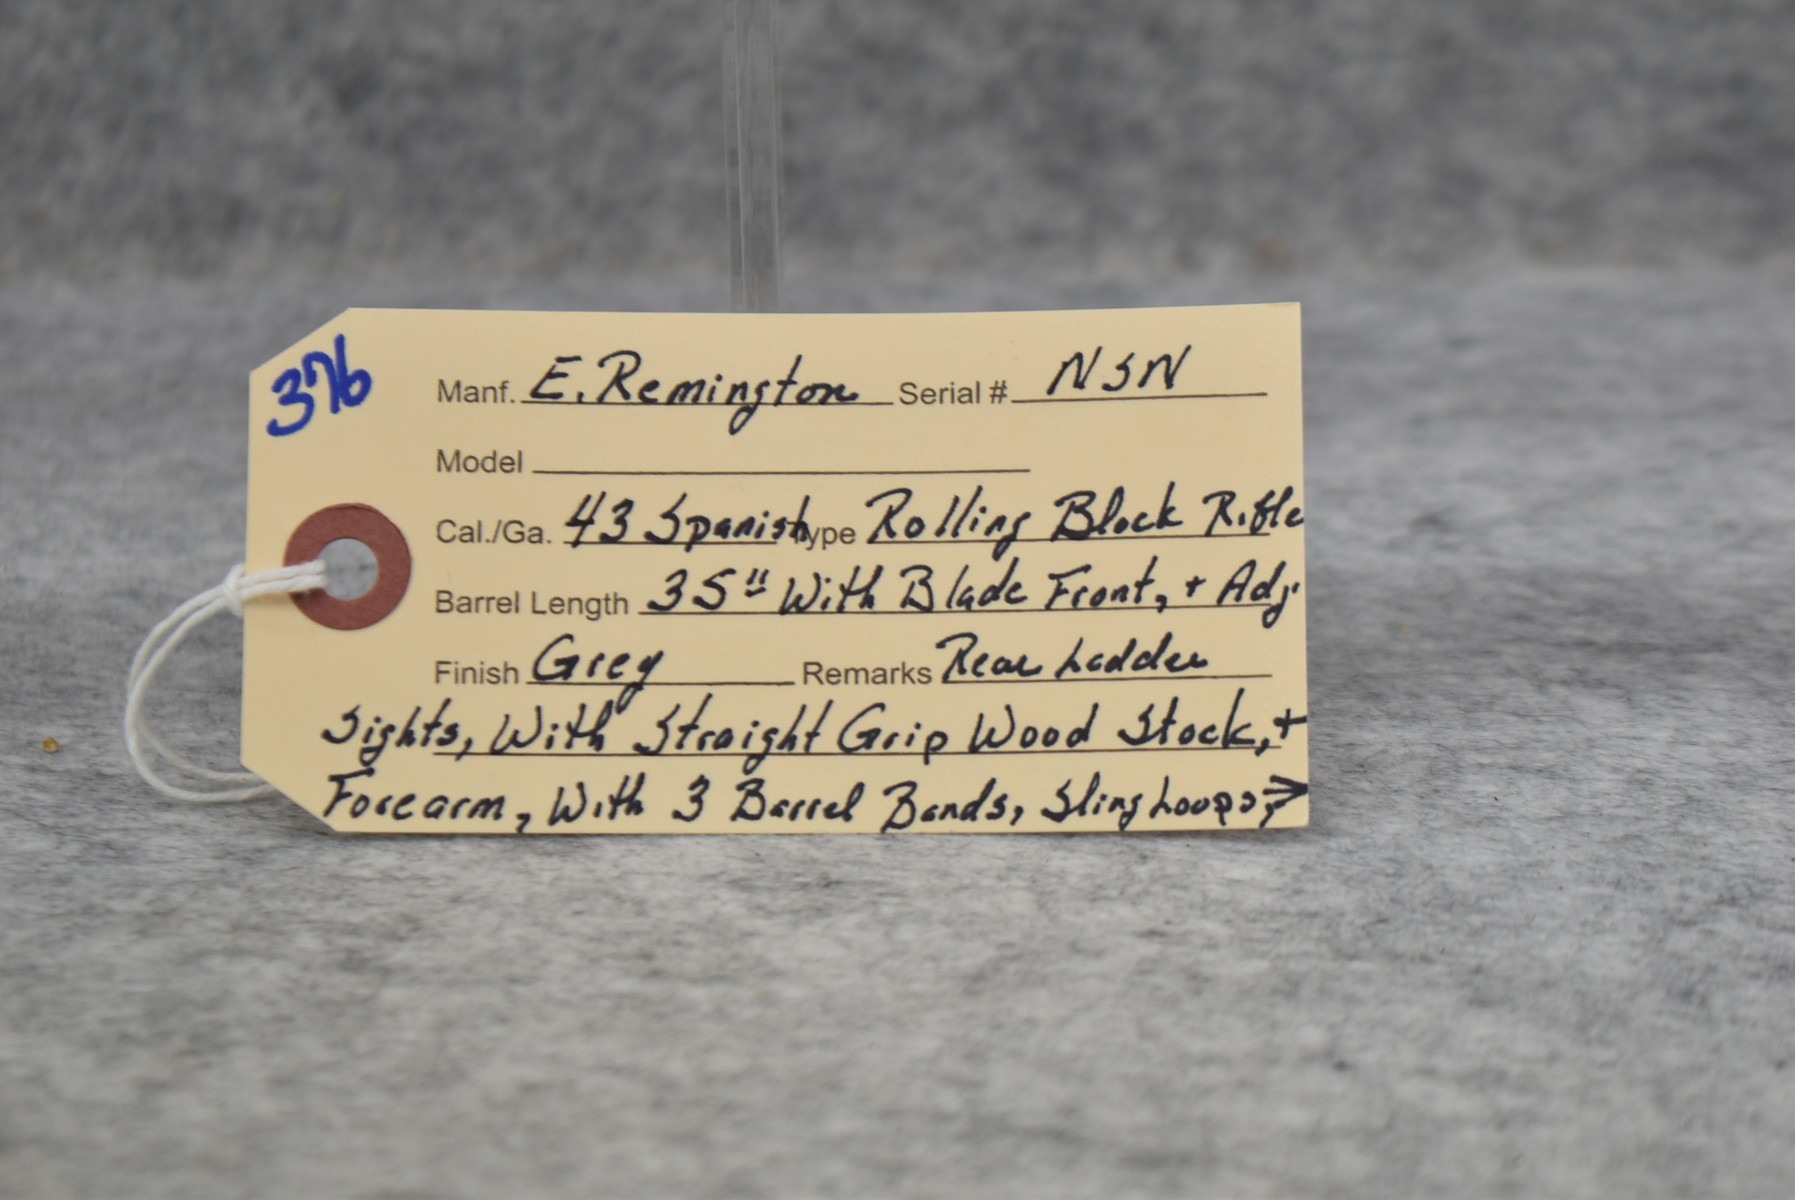 376
Manf. E. Remington Serial # NSN
Model
Cal./Ga. 43 Spanish ype Rolling Block Rifle
Barrel Length 35" With Blade Front, + Adj.
Finish Grey Remarks Rear Ladder
Sights, With Straight Grip Wood Stock, +
Forearm, With 3 Barrel Bands, Sling Loops, →